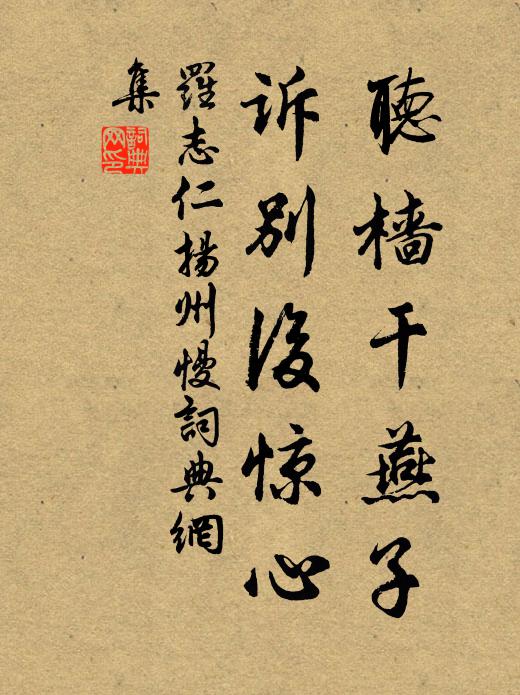 聽檣干燕子
訴別後惊心
羅志仁揚州慢詞典網
集
詞典
网印